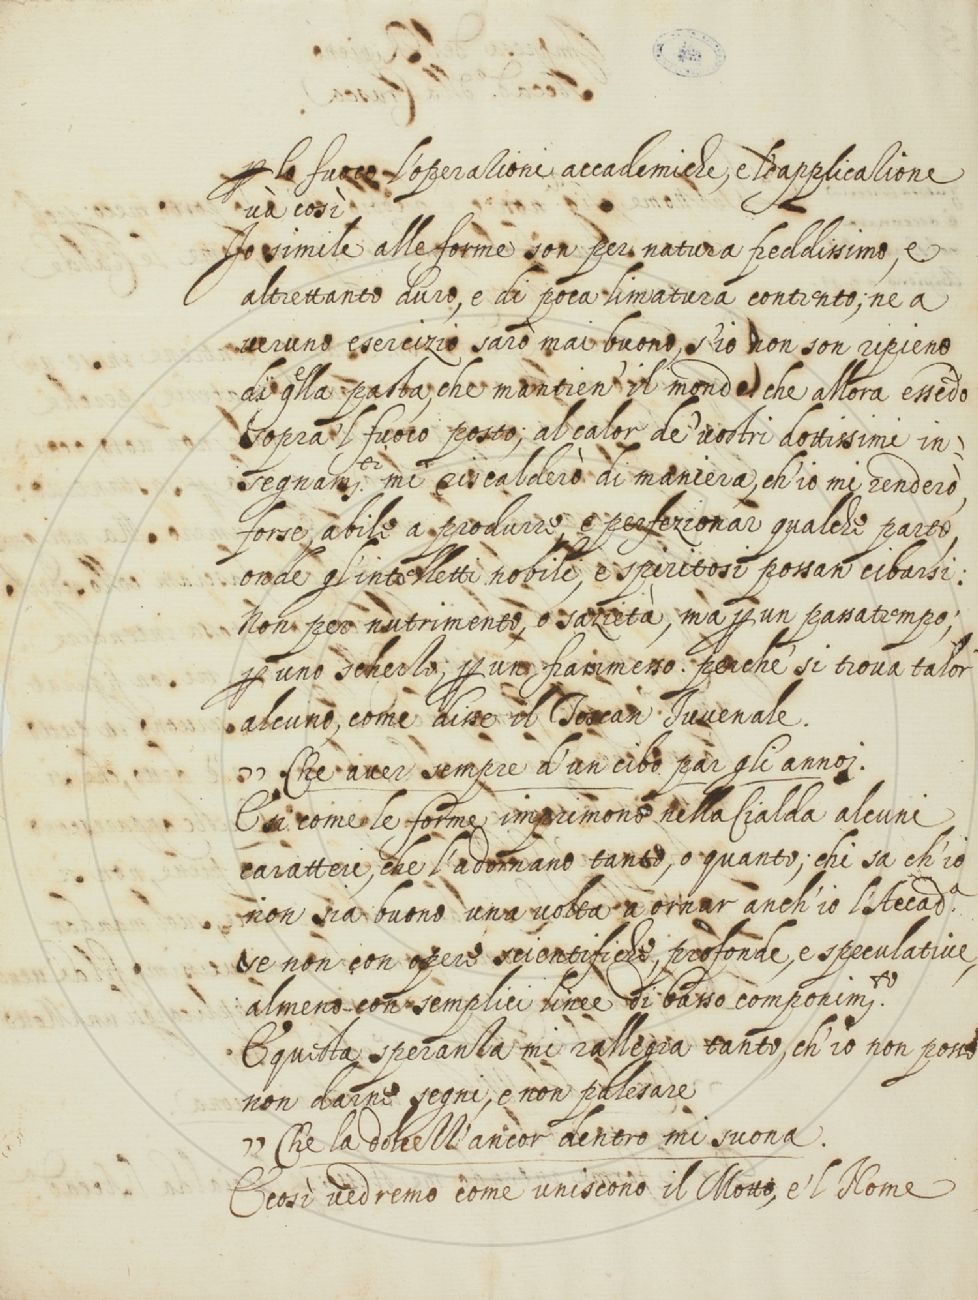 p lo fuoco l'operazioni accademiche, e l'applicazione
và così
Io simile alle forme son per natura freddissimo, e
altrettanto duro, e di poca limatura contento; ne a
veruno esercizio sarò mai buono, s'io non son ripieno
di qlla pasta, che mantien' il mondo, che allora essedo
sopra 'l fuoco posto, al calor de' vostri dottissimi in-
segnam.ti mi riscalderò di maniera, ch'io mi renderò,
forse, abile a produrre, e perfezionar qualche parto,
onde gl'intelletti nobili, e spiritosi possan cibarsi:
Non per nutrimento, o sazietà, ma p un passatempo;
p uno scherzo; p un frammesso. perchè si trova talor
alcuno, come disse il Toscan Juvenale.
,, Che aver sempre d'un cibo par gli annoj.
E si come le forme imprimono nella Cialda alcuni
caratteri, che l'adornano tanto, o quanto; chi sa ch'io
non sia buono una volta a ornar anch'io l'Accad.a
se non con opere scientifiche, profonde, e speculative,
almeno con semplici linee di basso componim.to
E questa speranza mi rallegra tanto, ch'io non posso
non darne segni, e non palesare
,, Che la dolcezz'ancor dentro mi suona.
E così vedremo come uniscono il Motto, e 'l Nome